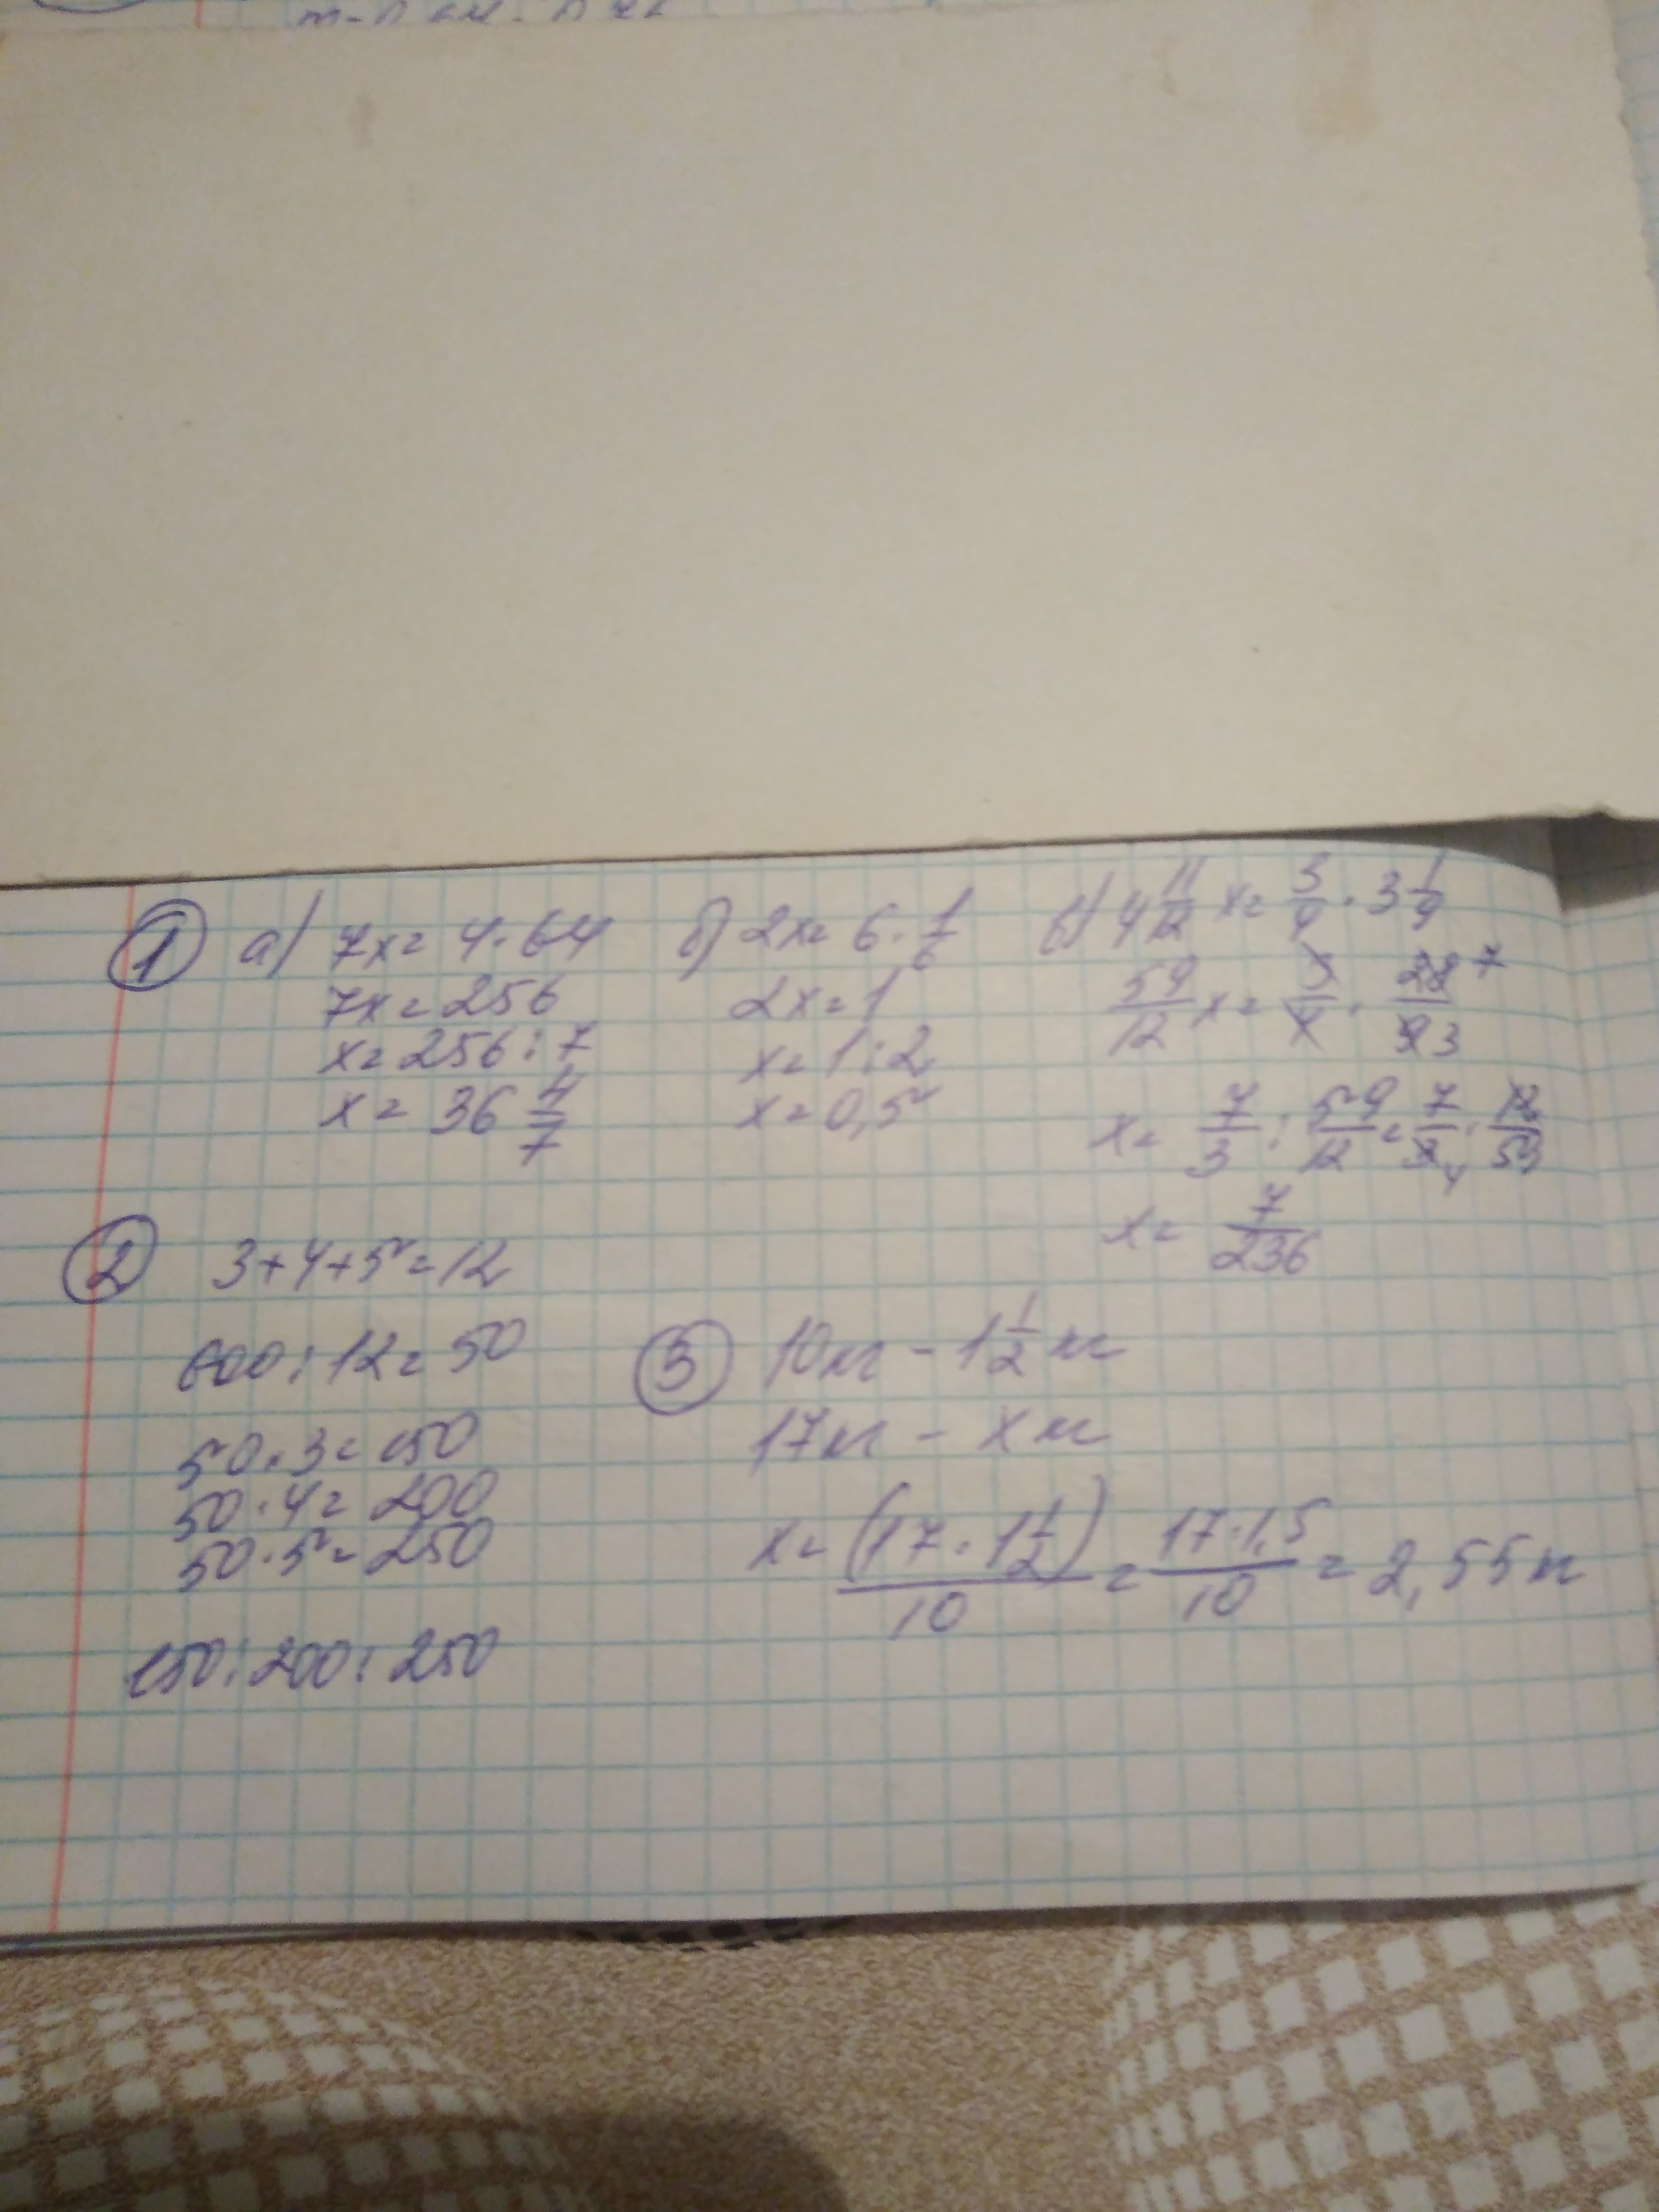 ① а) 7x = 4 · 64
7x = 256
x = 256 : 7
x = 36 4/7
б) 2x = 6 · 1/6
2x = 1
x = 1 : 2
x = 0,5
в) 4 11/12 x = 3/4 · 3 1/9
59/12 x = 3/4 · 28 7/9 3
x = 7/3 : 59/12 = 7/3 4 · 12/59
x = 7/236
② 3 + 4 + 5 = 12
600 : 12 = 50
50 · 3 = 150
50 · 4 = 200
50 · 5 = 250
150 : 200 : 250
③ 10м - 1 1/2 м
17м - x м
x = (17 · 1 1/2)/10 = 17 · 1,5/10 = 2,55 м